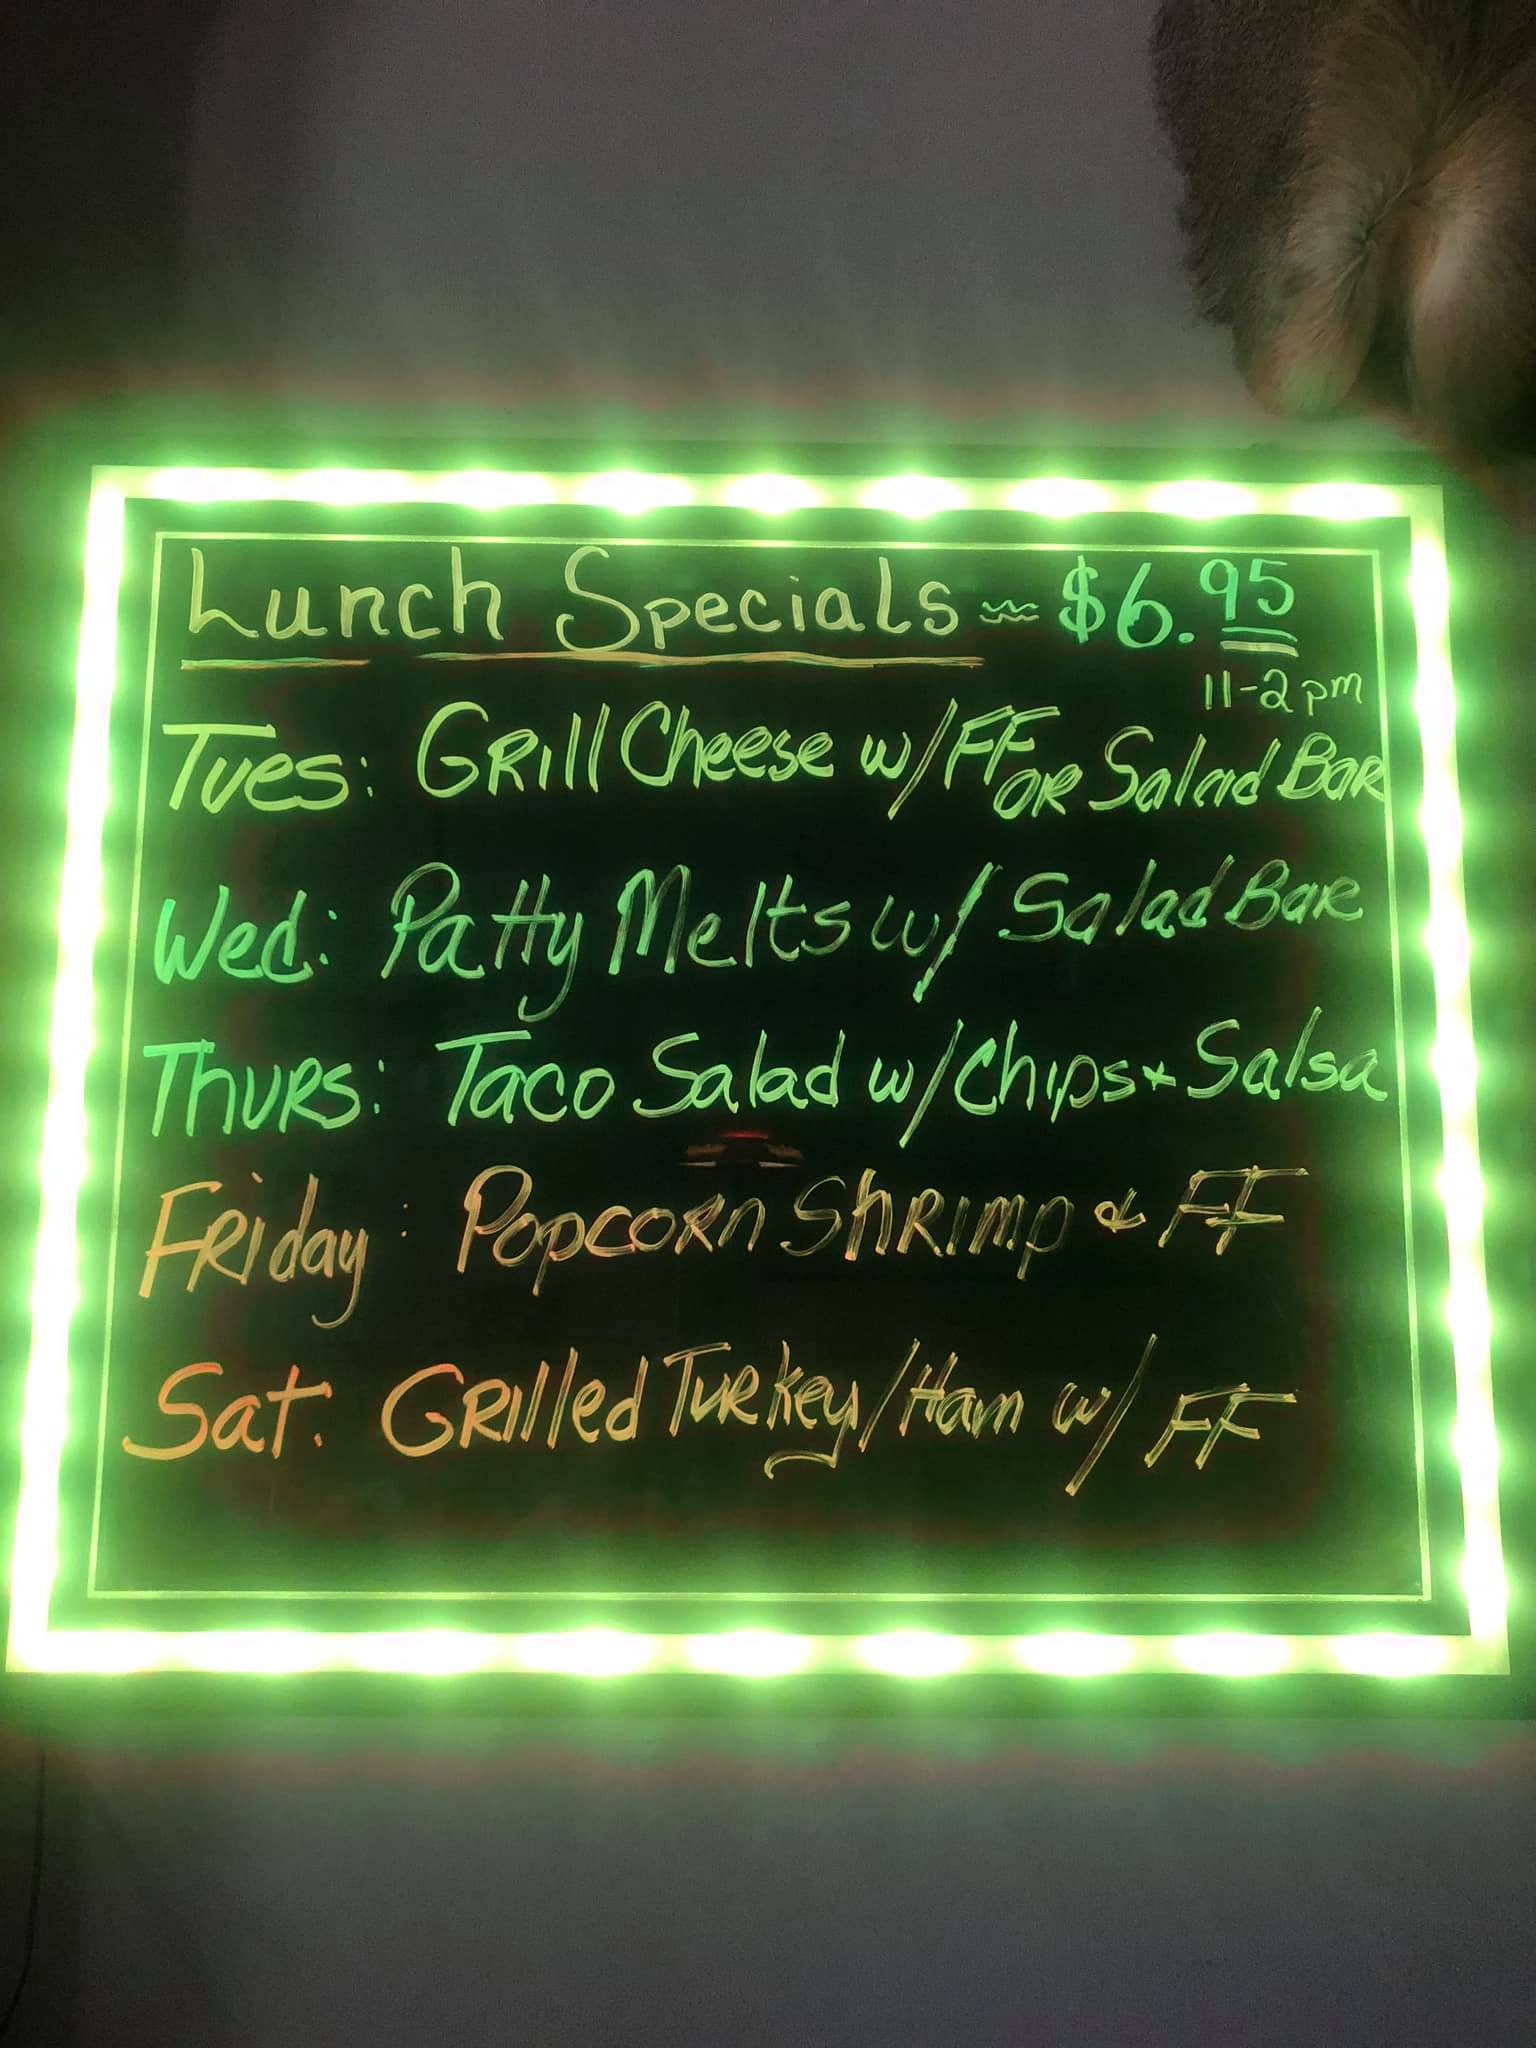 Lunch Specials ~ $6.95
11-2pm
Tues: Grill Cheese w/ FF or Salad Bar
Wed: Patty Melts w/ Salad Bar
Thurs: Taco Salad w/ Chips + Salsa
Friday: Popcorn Shrimp & FF
Sat. Grilled Turkey/Ham w/ FF